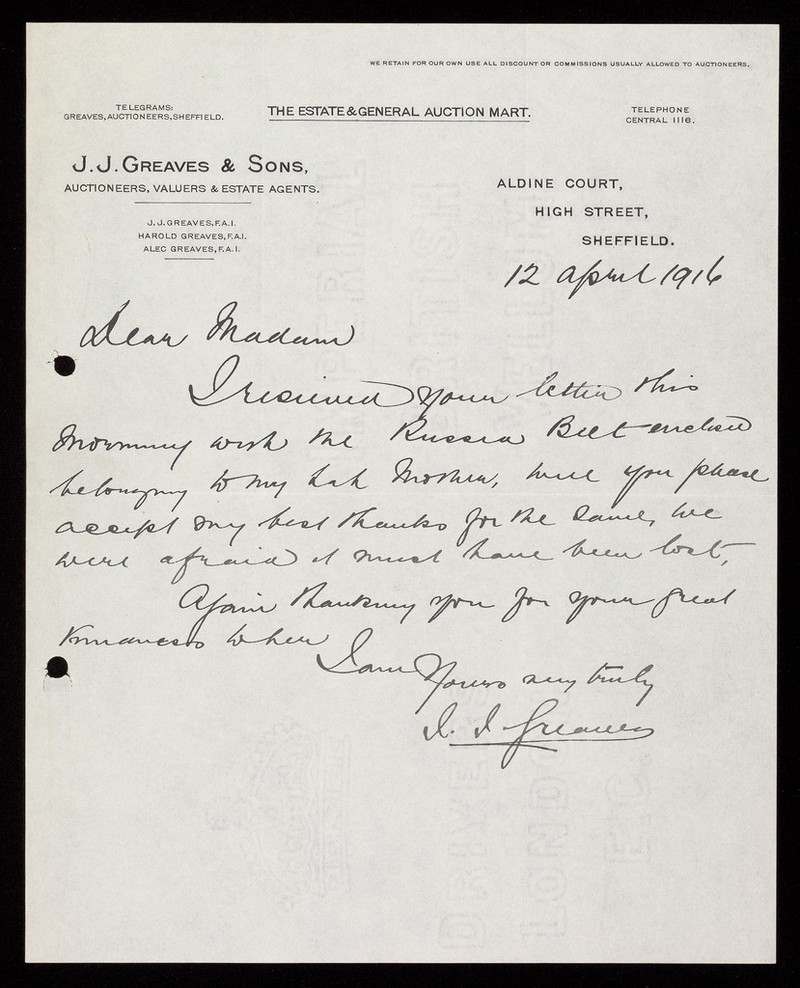 WE RETAIN FOR OUR OWN USE ALL DISCOUNT OR COMMISSIONS USUALLY ALLOWED TO AUCTIONEERS.
TELEGRAMS:
GREAVES, AUCTIONEERS, SHEFFIELD.
THE ESTATE & GENERAL AUCTION MART.
TELEPHONE
CENTRAL 1116.
J. J. GREAVES & SONS,
AUCTIONEERS, VALUERS & ESTATE AGENTS.
J. J. GREAVES, F.A.I.
HAROLD GREAVES, F.A.I.
ALEC GREAVES, F.A.I.
ALDINE COURT,
HIGH STREET,
SHEFFIELD.
12 April 1916
Dear Madam
I received your letter this
morning with the Russia Belt enclosed
belonging to my late Mother, will you please
accept my best thanks for the same, we
were afraid it must have been lost,
Again thanking you for your great
kindness to her
I am Yours very truly
J. J. Greaves